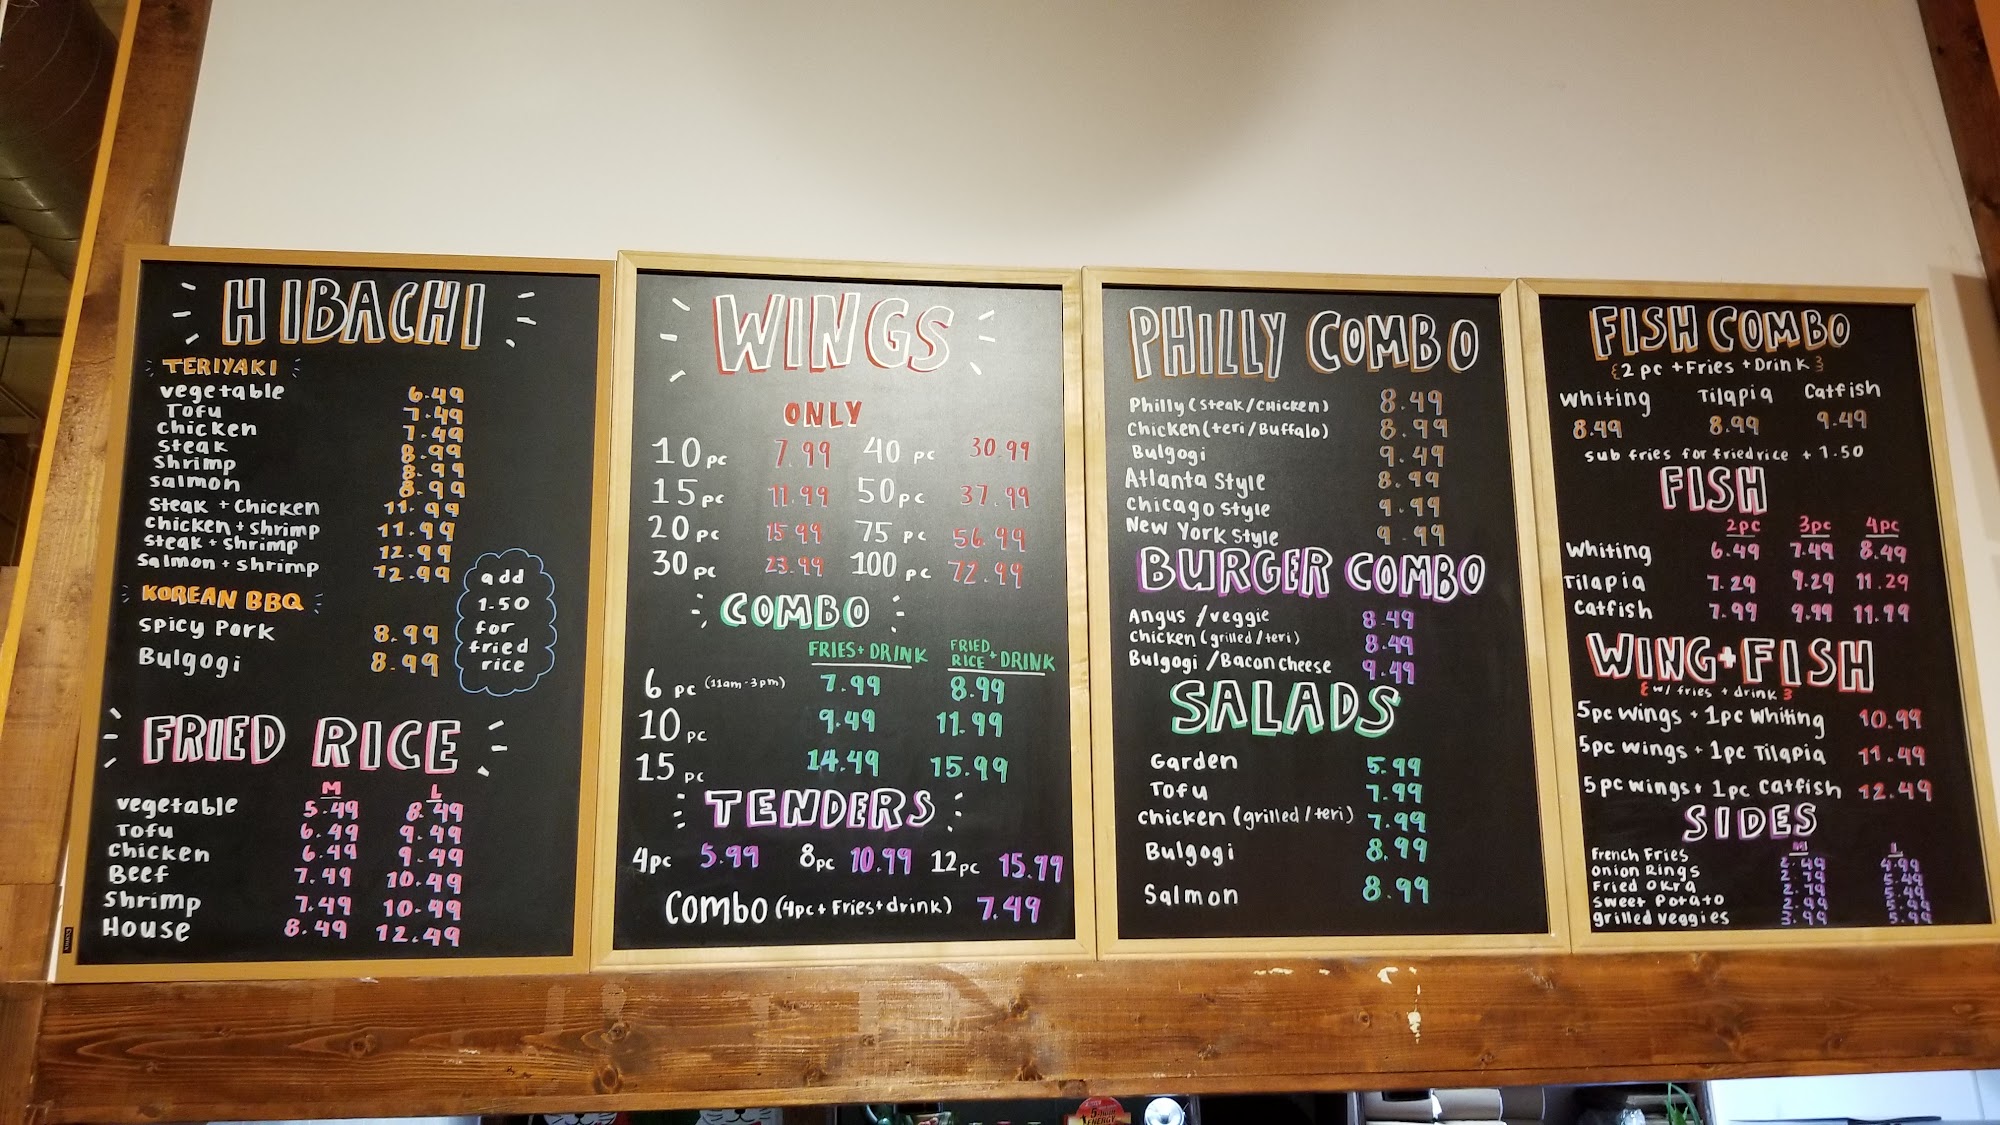 HIBACHI
TERIYAKI
vegetable 6.49
Tofu 7.49
chicken 7.49
steak 8.99
shrimp 8.99
salmon 8.99
steak + chicken 11.99
chicken + shrimp 11.99
steak + shrimp 12.99
salmon + shrimp 12.99
KOREAN BBQ
spicy pork 8.99
Bulgogi 8.99
add
1.50
for
fried
rice
FRIED RICE
M L
vegetable 5.49 8.49
Tofu 6.49 9.49
chicken 6.49 9.49
Beef 7.49 10.49
Shrimp 7.49 10.49
House 8.49 12.49
WINGS
ONLY
10 pc 7.99 40 pc 30.99
15 pc 11.99 50 pc 37.99
20 pc 15.99 75 pc 56.99
30 pc 23.99 100 pc 72.99
COMBO
FRIES + DRINK FRIED RICE + DRINK
6 pc (11am-3pm) 7.99 8.99
10 pc 9.49 11.99
15 pc 14.49 15.99
TENDERS
4pc 5.99 8pc 10.99 12pc 15.99
Combo (4pc + Fries + drink) 7.49
PHILLY COMBO
Philly (steak/chicken) 8.49
chicken (teri/Buffalo) 8.99
Bulgogi 9.49
Atlanta Style 8.99
Chicago style 9.99
New York style 9.99
BURGER COMBO
Angus /veggie 8.49
chicken (grilled/teri) 8.49
Bulgogi /Bacon cheese 9.49
SALADS
Garden 5.99
Tofu 7.99
chicken (grilled/teri) 7.99
Bulgogi 8.99
Salmon 8.99
FISH COMBO
{2 pc + Fries + Drink}
whiting Tilapia Catfish
8.49 8.99 9.49
sub fries for fried rice + 1.50
FISH
2pc 3pc 4pc
Whiting 6.49 7.49 8.49
Tilapia 7.29 9.29 11.29
Catfish 7.99 9.99 11.99
WING + FISH
{w/ fries + drink}
5pc wings + 1pc whiting 10.99
5pc wings + 1pc Tilapia 11.49
5pc wings + 1pc catfish 12.49
SIDES
M L
French Fries 2.49 4.99
Onion Rings 2.79 5.49
Fried Okra 2.79 5.49
sweet Potato 2.99 5.49
grilled veggies 3.99 5.99
5-hour
ENERGY